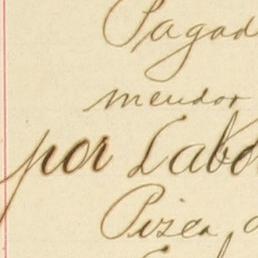 Pagad
mendor
por Labo
Pizca